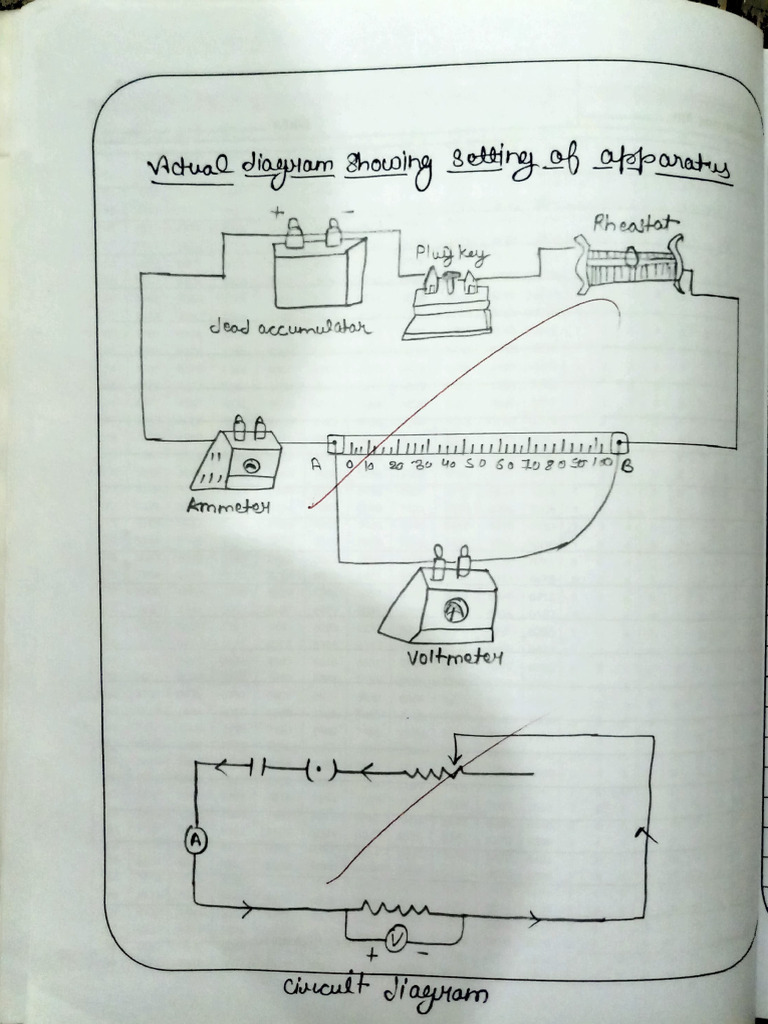 Actual diagram showing setting of apparatus
+ -
Rheostat
Plug key
Lead accumulator
A 0 10 20 30 40 50 60 70 80 90 100 B
Ammeter
A
Voltmeter
A
V
+ -
Circuit diagram